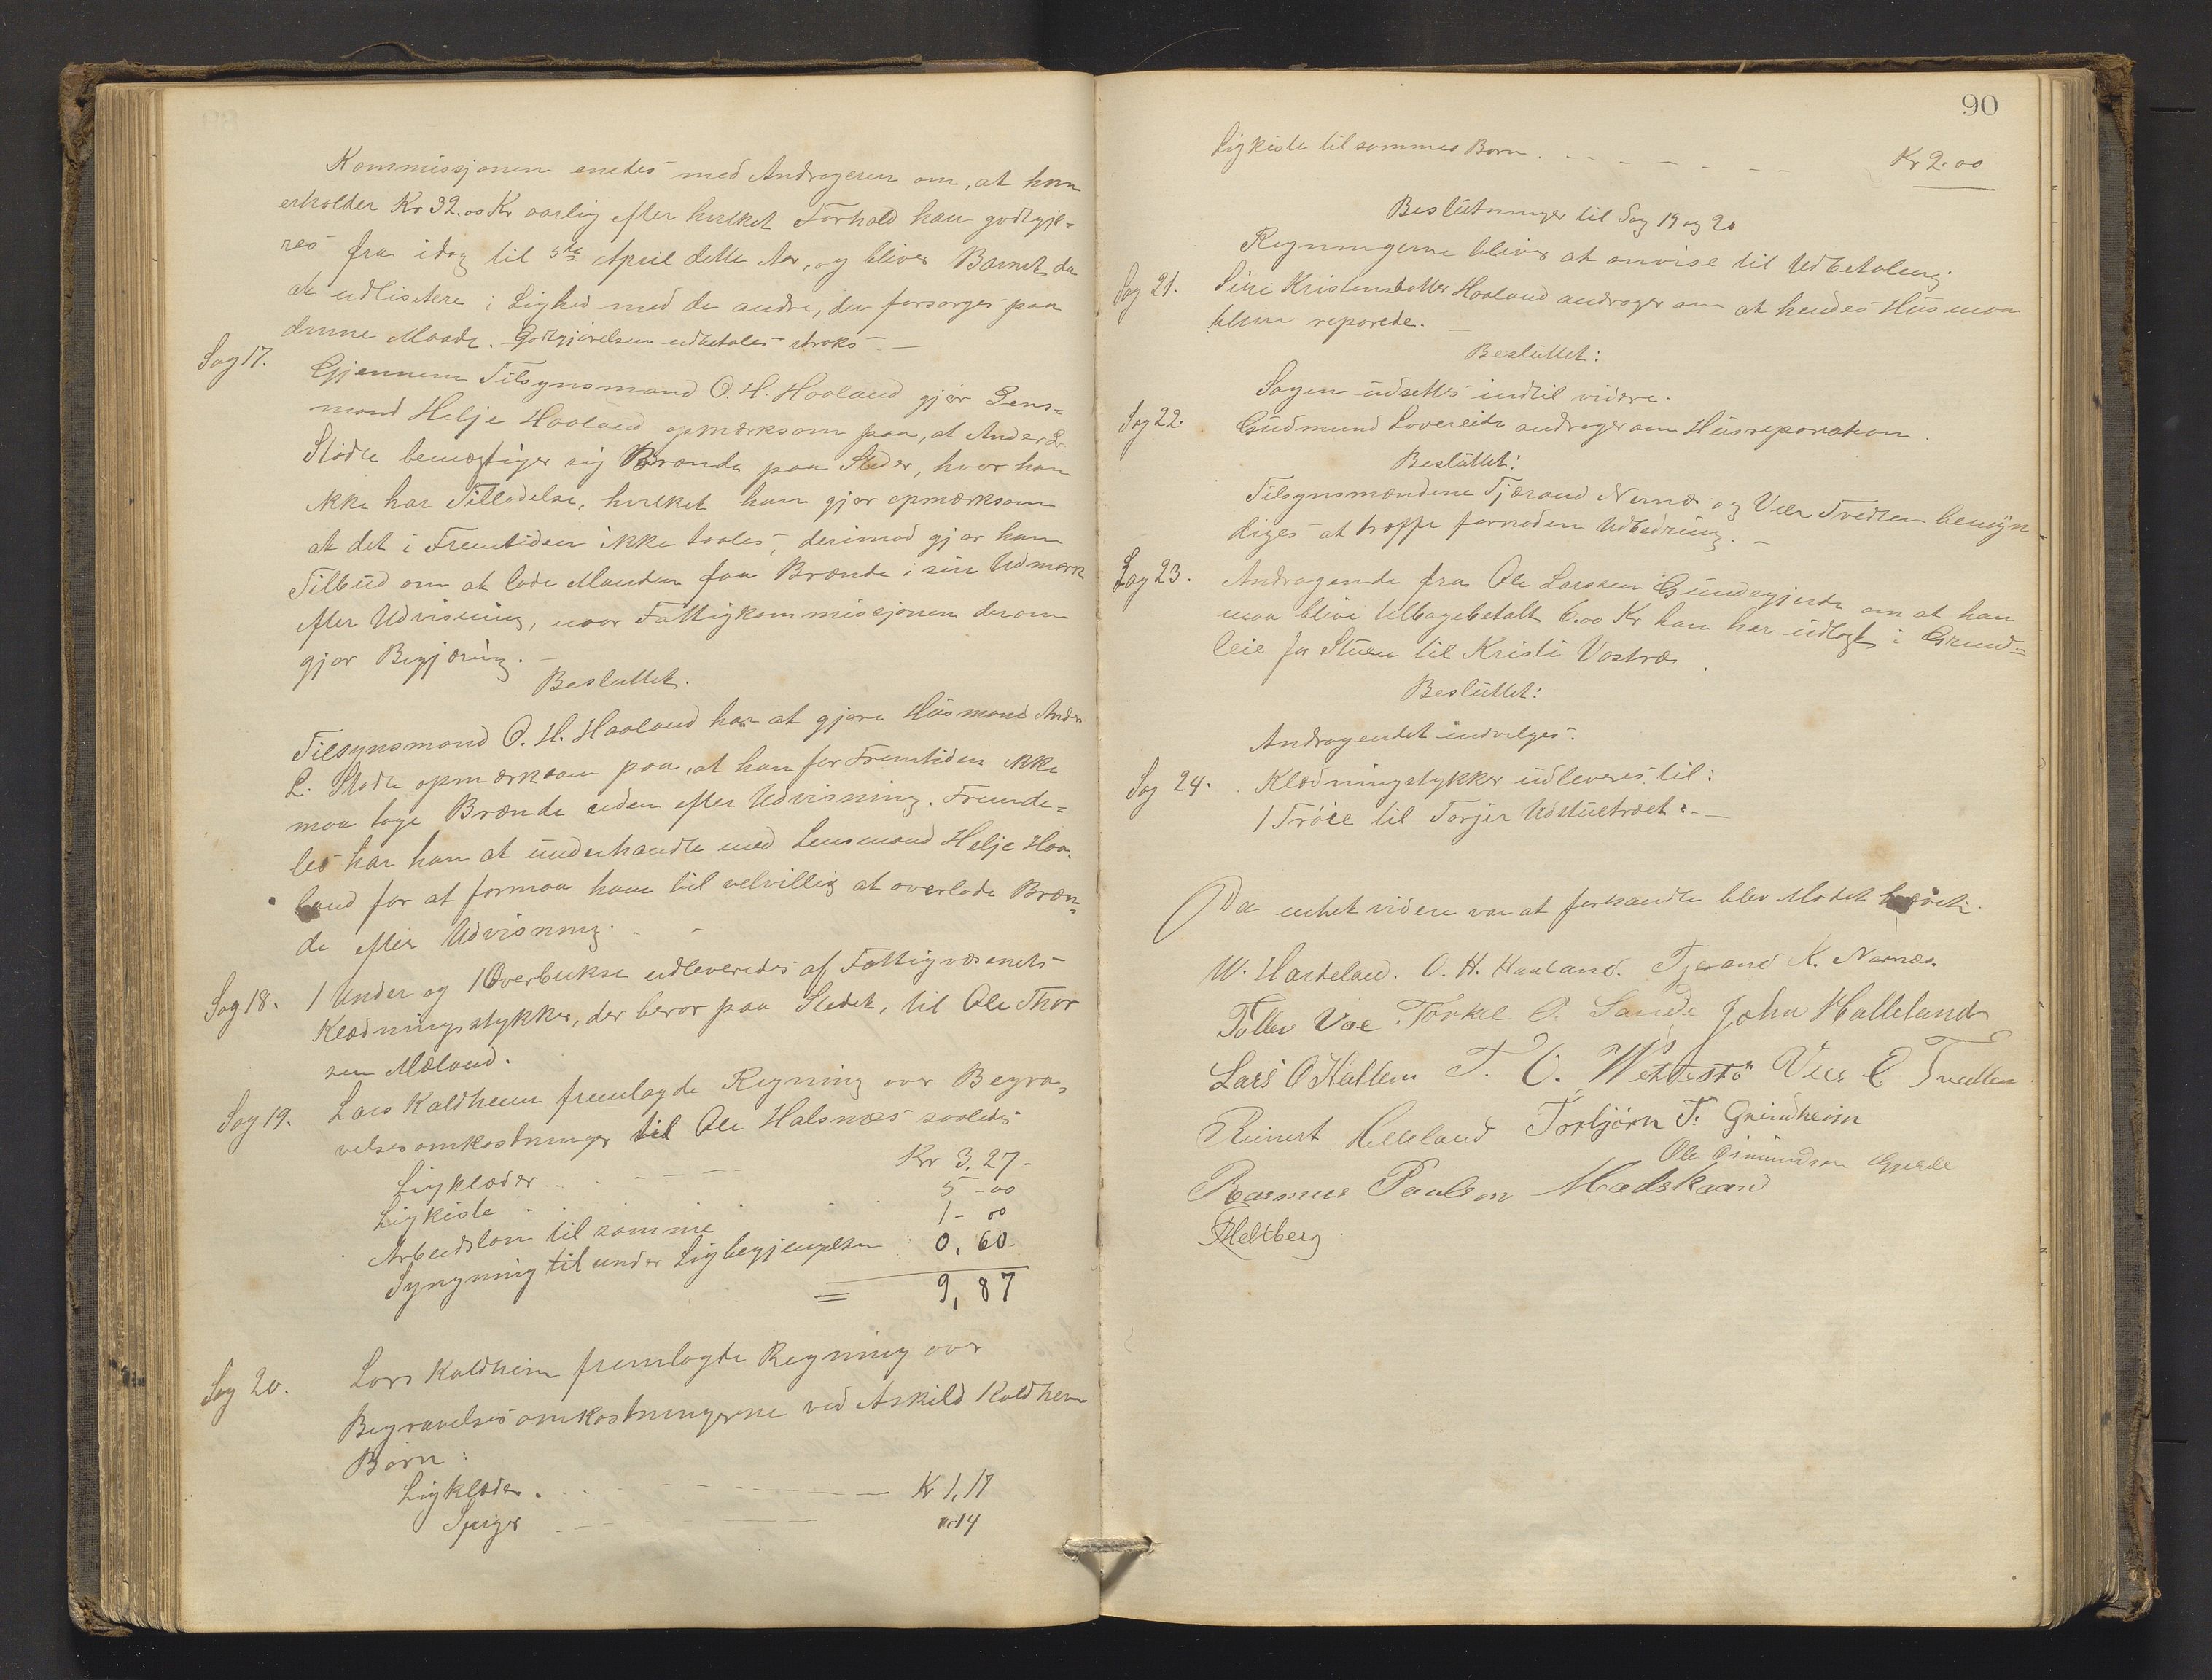 Kommissjonen enedes med Andrageren om, at han
erholder Kr 32.00 Kr aarlig efter hvilket Forhold han godtgjø=
res fra idag til 5te April dette Aar, og bliver Barnet da
at udlisitere i Lighed med de andre, der forsørges paa
denne Maade. Godtgjørelsen udbetales straks.—
Sag 17. Gjennem Tilsynsmand O. H. Haaland gjør Lens=
mand Helje Haaland opmærksom paa, at Ander L
Stødle bemægtiger sig Brænde paa Steder, hvor han
ikke har Tilladelse, hvilket han gjør opmærksom
at det i Fremtiden ikke taales, derimod gjør han
Tilbud om at lade Manden faa Brænde i sin Udmark
efter Udvisning, naar Fattigkommissjonen derom
gjør Begjæring.—
Besluttet.
Tilsynsmand O. H. Haaland har at gjøre Husmand Ander
L. Stødle opmærksom paa, at han for Fremtiden ikke
maa tage Brænde uden efter Udvisning. Fremde=
les har han at underhandle med Lensmand Helje Haa=
land for at formaa ham til velvillig at overlade Bræn=
de efter Udvisning.
Sag 18. 1 Under og 1 Overbukse udleveredes af Fattigvæsenets
Klædningsstykker, der beror paa Stedet, til Ole Thor
sen Mæland.
Sag 19. Lars Kaldheim fremlagde Regning over Begra=
velsesomkostninger til Ole Halsnæs saaledes
Ligklæder Kr 3,27-
Ligkiste 5-00
Arbeidsløn til samme 1-00
Syngning til under Ligbegjængelsen 0,60
= 9,87
Sag 20. Lars Kaldheim fremlagde Regning over
Begravelsesomkostningerne ved Askild Kaldheim
Børn:
Ligklæder. Kr 1,17
Spiger 14
90
Ligkiste til sammes Børn Kr 2.00
Beslutninger til Sag 19 og 20
Regningerne bliver at anvise til Udbetaling.
Sag 21. Siri Kristensdatter Haaland andrager om at hendes Hus maa
blive reparede.—
Besluttet:
Sagen udsettes indtil videre.
Sag 22. Gudmund Lovereide andrager om Husreparation.
Besluttet:
Tilsynsmændene Tjerand Nernæs og Veer Tvedten bemyn
diges at træffe fornøden Udbedring.—
Sag 23. Andragende fra Ole Larssen Gundegjerde om at han
maa blive tilbagebetalt 6.00 Kr han har udlagt i Grund=
leie for Stuen til Kristi Vostræ.
Besluttet:
Andragendet indvilges.
Sag 24. Klædningstykker udleveres til:
1 Trøie til Torjer Udstuetræet.—
Da intet videre var at forhandle blev Mødet
W. Hardeland. O. H. Haaland. Tjerand K. Nernæs.
Tollev Vae Torkel O. Sande John Halleland
Lars O Kallem T. O. Vee E. Tvedten
Reinert Helleland Torbjørn T. Grindheim
Ole Osmundsen Gjerde
Rasmus Paulson Madskaard
Meltberg